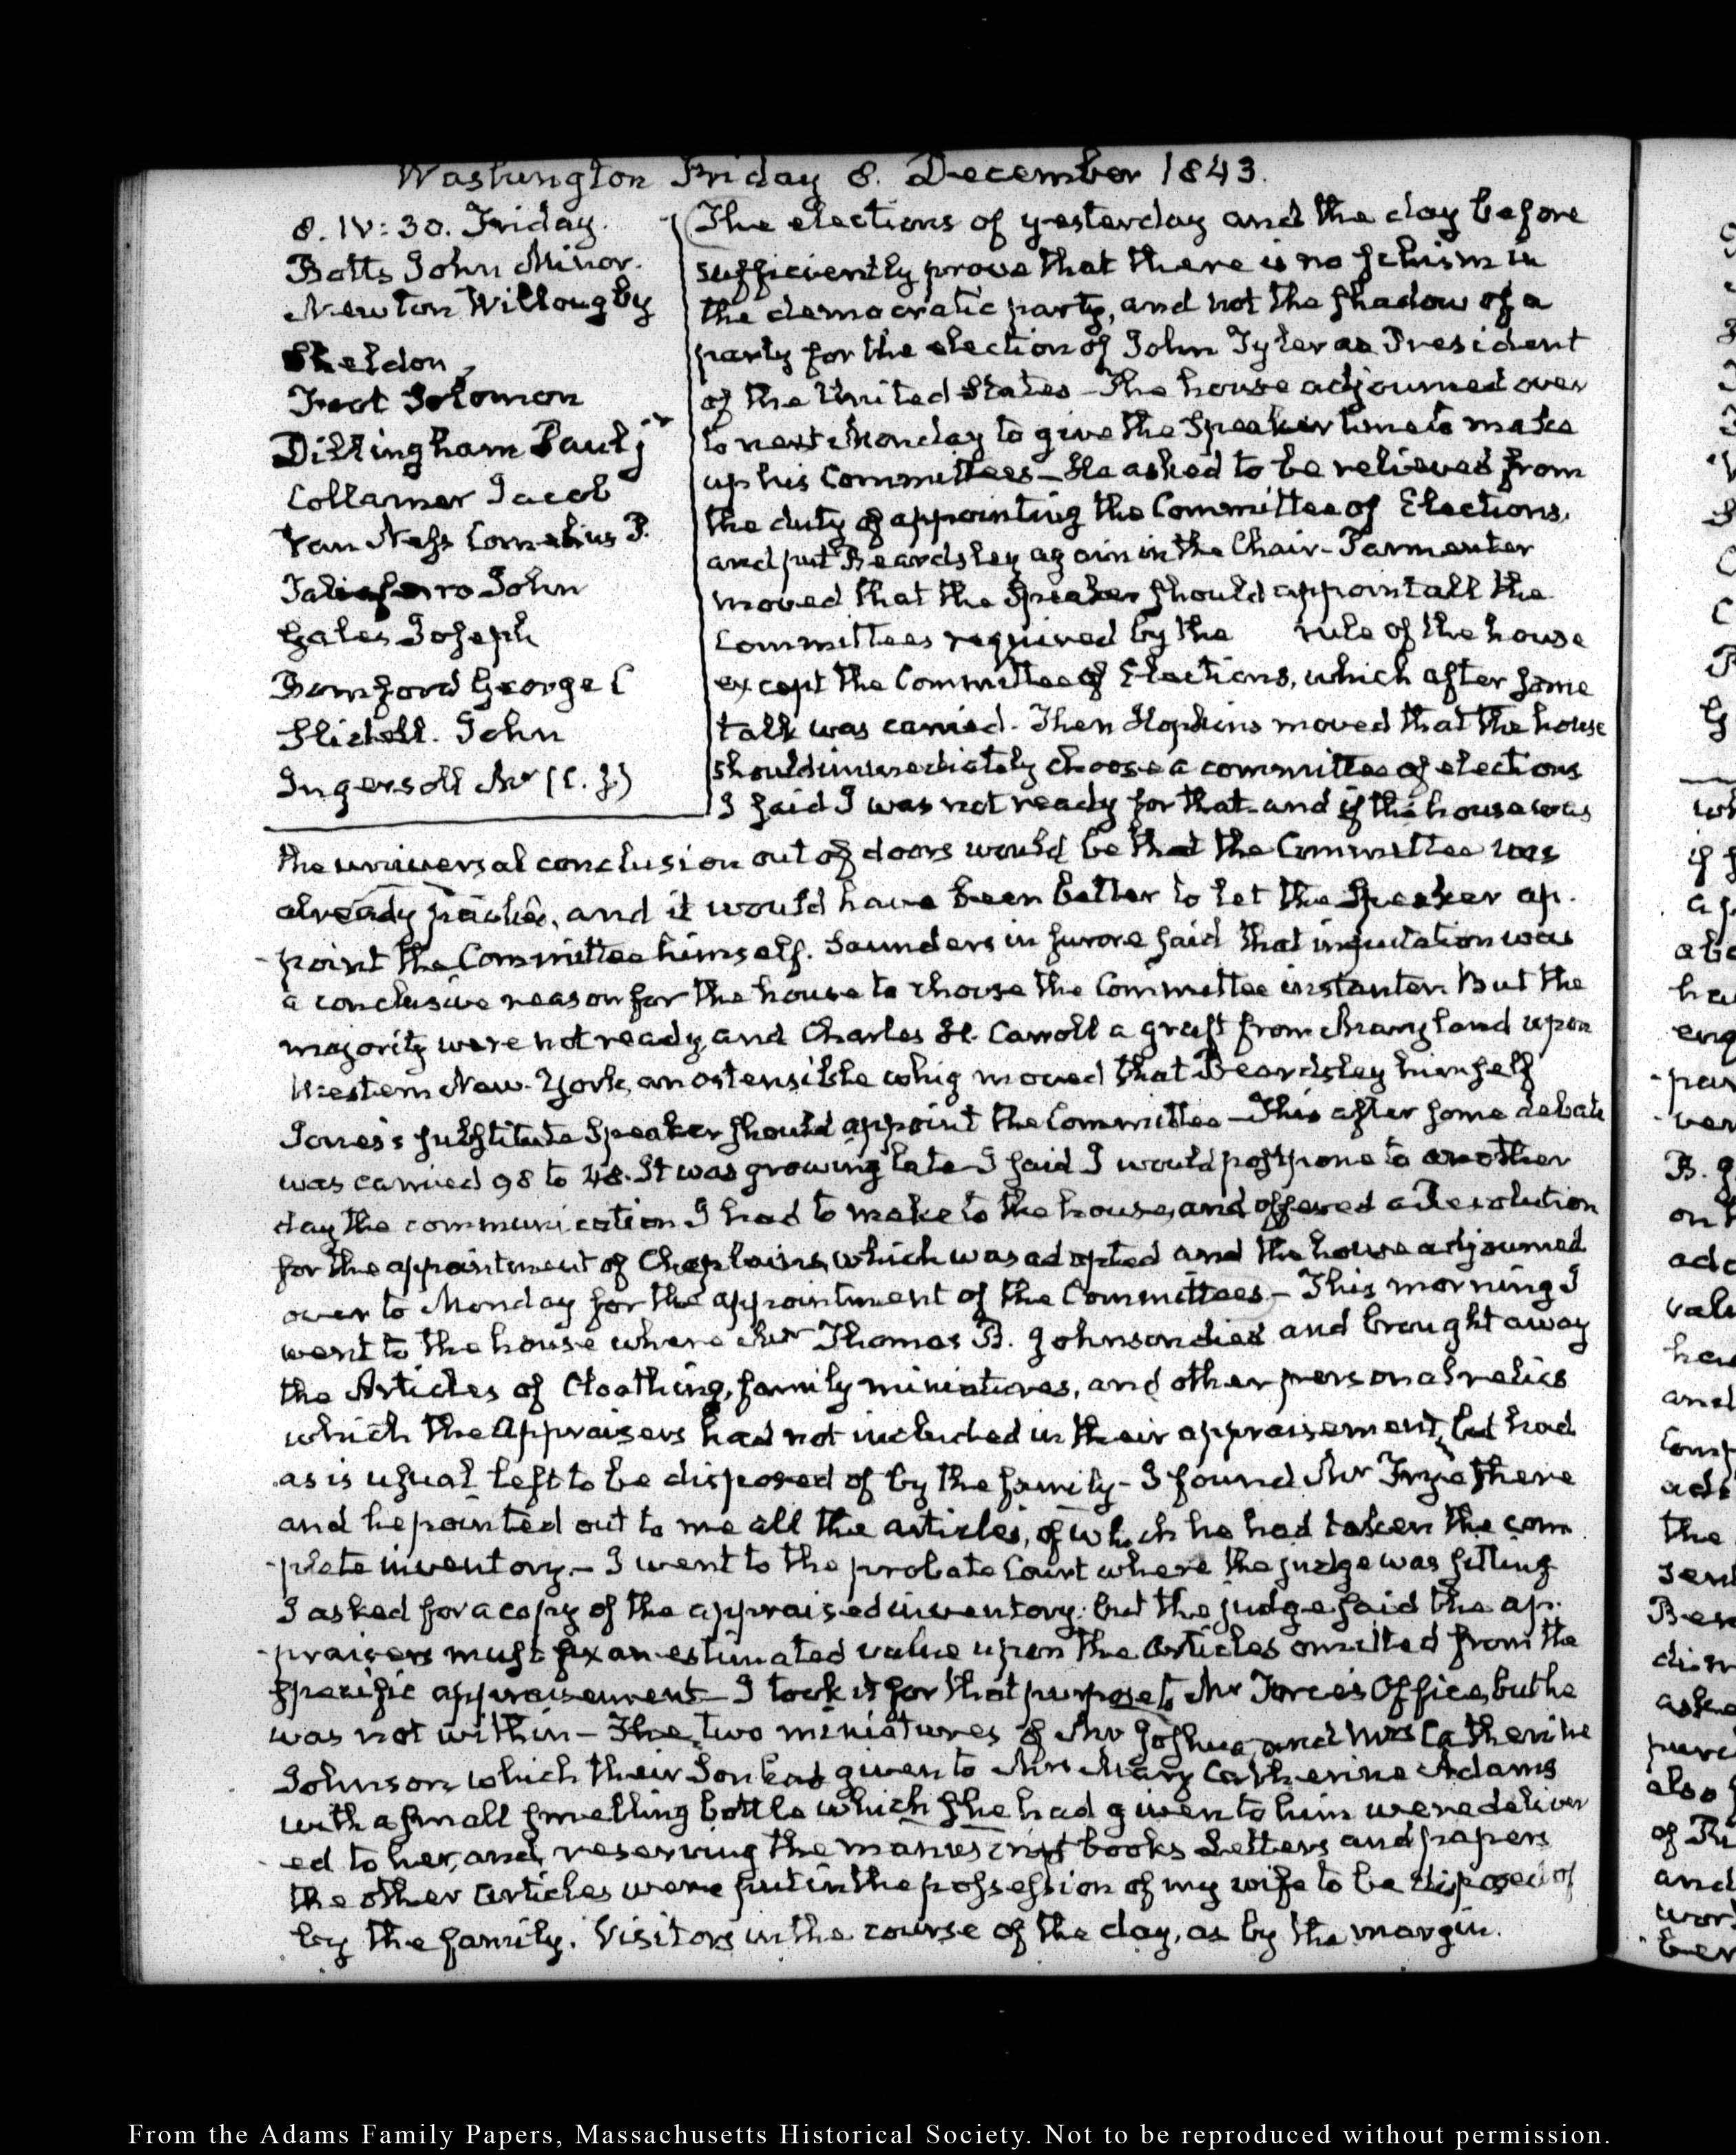 Washington Friday 8. December 1843.
8. IV:30. Friday.
Botts John Minor.
Newton Willougby
Sheldon
Foot Solomon
Dillingham Paul jr
Collamer Jacob
Van Ness Cornelius P.
Taliaferro John
Gales Joseph
Bomford George C
Slidell. John
Ingersoll Mr (C. J.)
The elections of yesterday and the day before
sufficiently prove that there is no schism in
the democratic party, and not the shadow of a
party for the election of John Tyler as President
of the United States – The house adjourned over
to next Monday to give the Speaker time to make
up his Committees – He asked to be relieved from
the duty of appointing the Committee of Elections,
and put Beardsley again in the Chair – Parmenter
moved that the Speaker should appoint all the
Committees required by the rule of the house
except the Committee of Elections, which after some
talk was carried. Then Hopkins moved that the house
should immediately choose a committee of elections
I said I was not ready for that and if the house was
the universal conclusion out of doors would be that the Committee was
already packed, and it would have been better to let the Speaker ap-
-point the Committee himself. Saunders in furore said that imputation was
a conclusive reason for the house to choose the Committee instanter. But the
majority were not ready, and Charles H. Carroll a graft from Maryland upon
Western New-York, an ostensible whig moved that Beardsley himself
Jones's substitute Speaker should appoint the Committee – This after some debate
was carried 98 to 48. It was growing late I said I would postpone to another
day the communication I had to make to the house, and offered a Resolution
for the appointment of Chaplains, which was adopted and the house adjourned
over to Monday for the appointment of the Committees – This morning I
went to the house where Mr Thomas B. Johnson died and brought away
the Articles of Cloathing, family miniatures, and other personal relics
which the Appraisers had not included in their appraisement, but had
as is usual left to be disposed of by the family – I found Mr Frye there
and he pointed out to me all the articles, of which he had taken the com
-plete inventory. – I went to the probate Court where the judge was sitting
I asked for a copy of the appraised inventory; but the judge said the ap-
-praisers must fix an estimated value upon the Articles omitted from the
specific appraisement – I took it for that purpose to Mr Force's Office, but he
was not within – The two miniatures of Mr Joshua, and Mrs Catherine
Johnson which their Son had given to Mrs Mary Catherine Adams
with a small smelling bottle which she had given to him were deliver
-ed to her, and, reserving the manuscript books Letters and papers
the other Articles were put in the possession of my wife to be disposed of
by the family. Visitors in the course of the day, as by the margin.
From the Adams Family Papers, Massachusetts Historical Society. Not to be reproduced without permission.